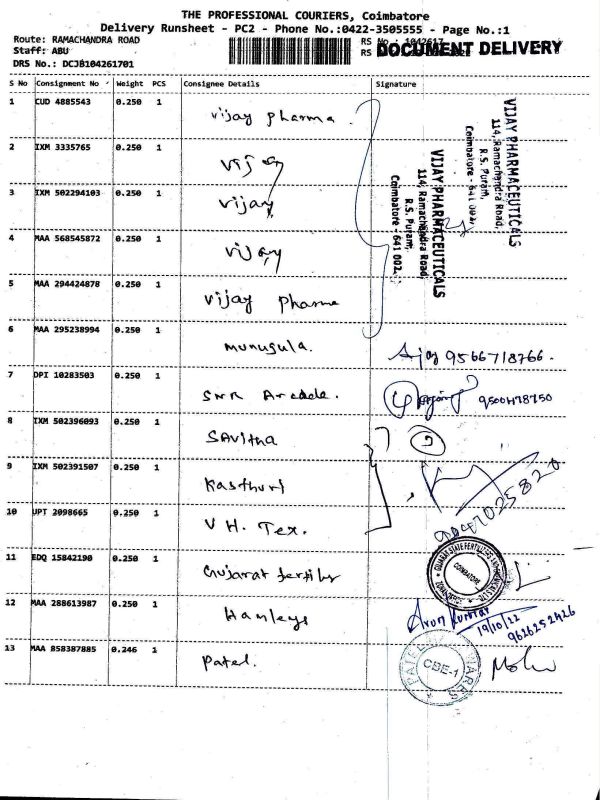 THE PROFESSIONAL COURIERS, Coimbatore
Delivery Runsheet - PC2 - Phone No.:0422-3505555 - Page No.:1
Route: RAMACHANDRA ROAD
RS No.: 1042617
Staff: ABU
RS
DOCUMENT DELIVERY
DRS No.: DCJB104261701
S No Consignment No Weight PCS Consignee Details Signature
1 CUD 4885543 0.250 1 vijay pharma.
2 IXM 3335765 0.250 1 vijay
3 IXM 502294103 0.250 1 vijay
4 MAA 568545872 0.250 1 vijay
5 MAA 294424878 0.250 1 vijay pharma
VIJAY PHARMACEUTICALS
114, Ramachandra Road,
R.S. Puram,
Coimbatore - 641 002.
VIJAY PHARMACEUTICALS
114, Ramachandra Road,
R.S. Puram,
Coimbatore - 641 002.
6 MAA 295238994 0.250 1 munusula. Ajay 9566718766.
7 DPI 10283503 0.250 1 SNR Arcade. 9500478750
8 IXM 502396093 0.250 1 SAvitha
9 IXM 502391507 0.250 1 Kasthuri
10 UPT 2098665 0.250 1 V.H. Tex. 9047025820
11 EDQ 15842190 0.250 1 Gujarat fertilizer
COIMBATORE
12 MAA 288613987 0.250 1 Hamleys Arun Kumar
19/10/22
9626252426
13 MAA 858387885 0.246 1 Patel.
CBE-1